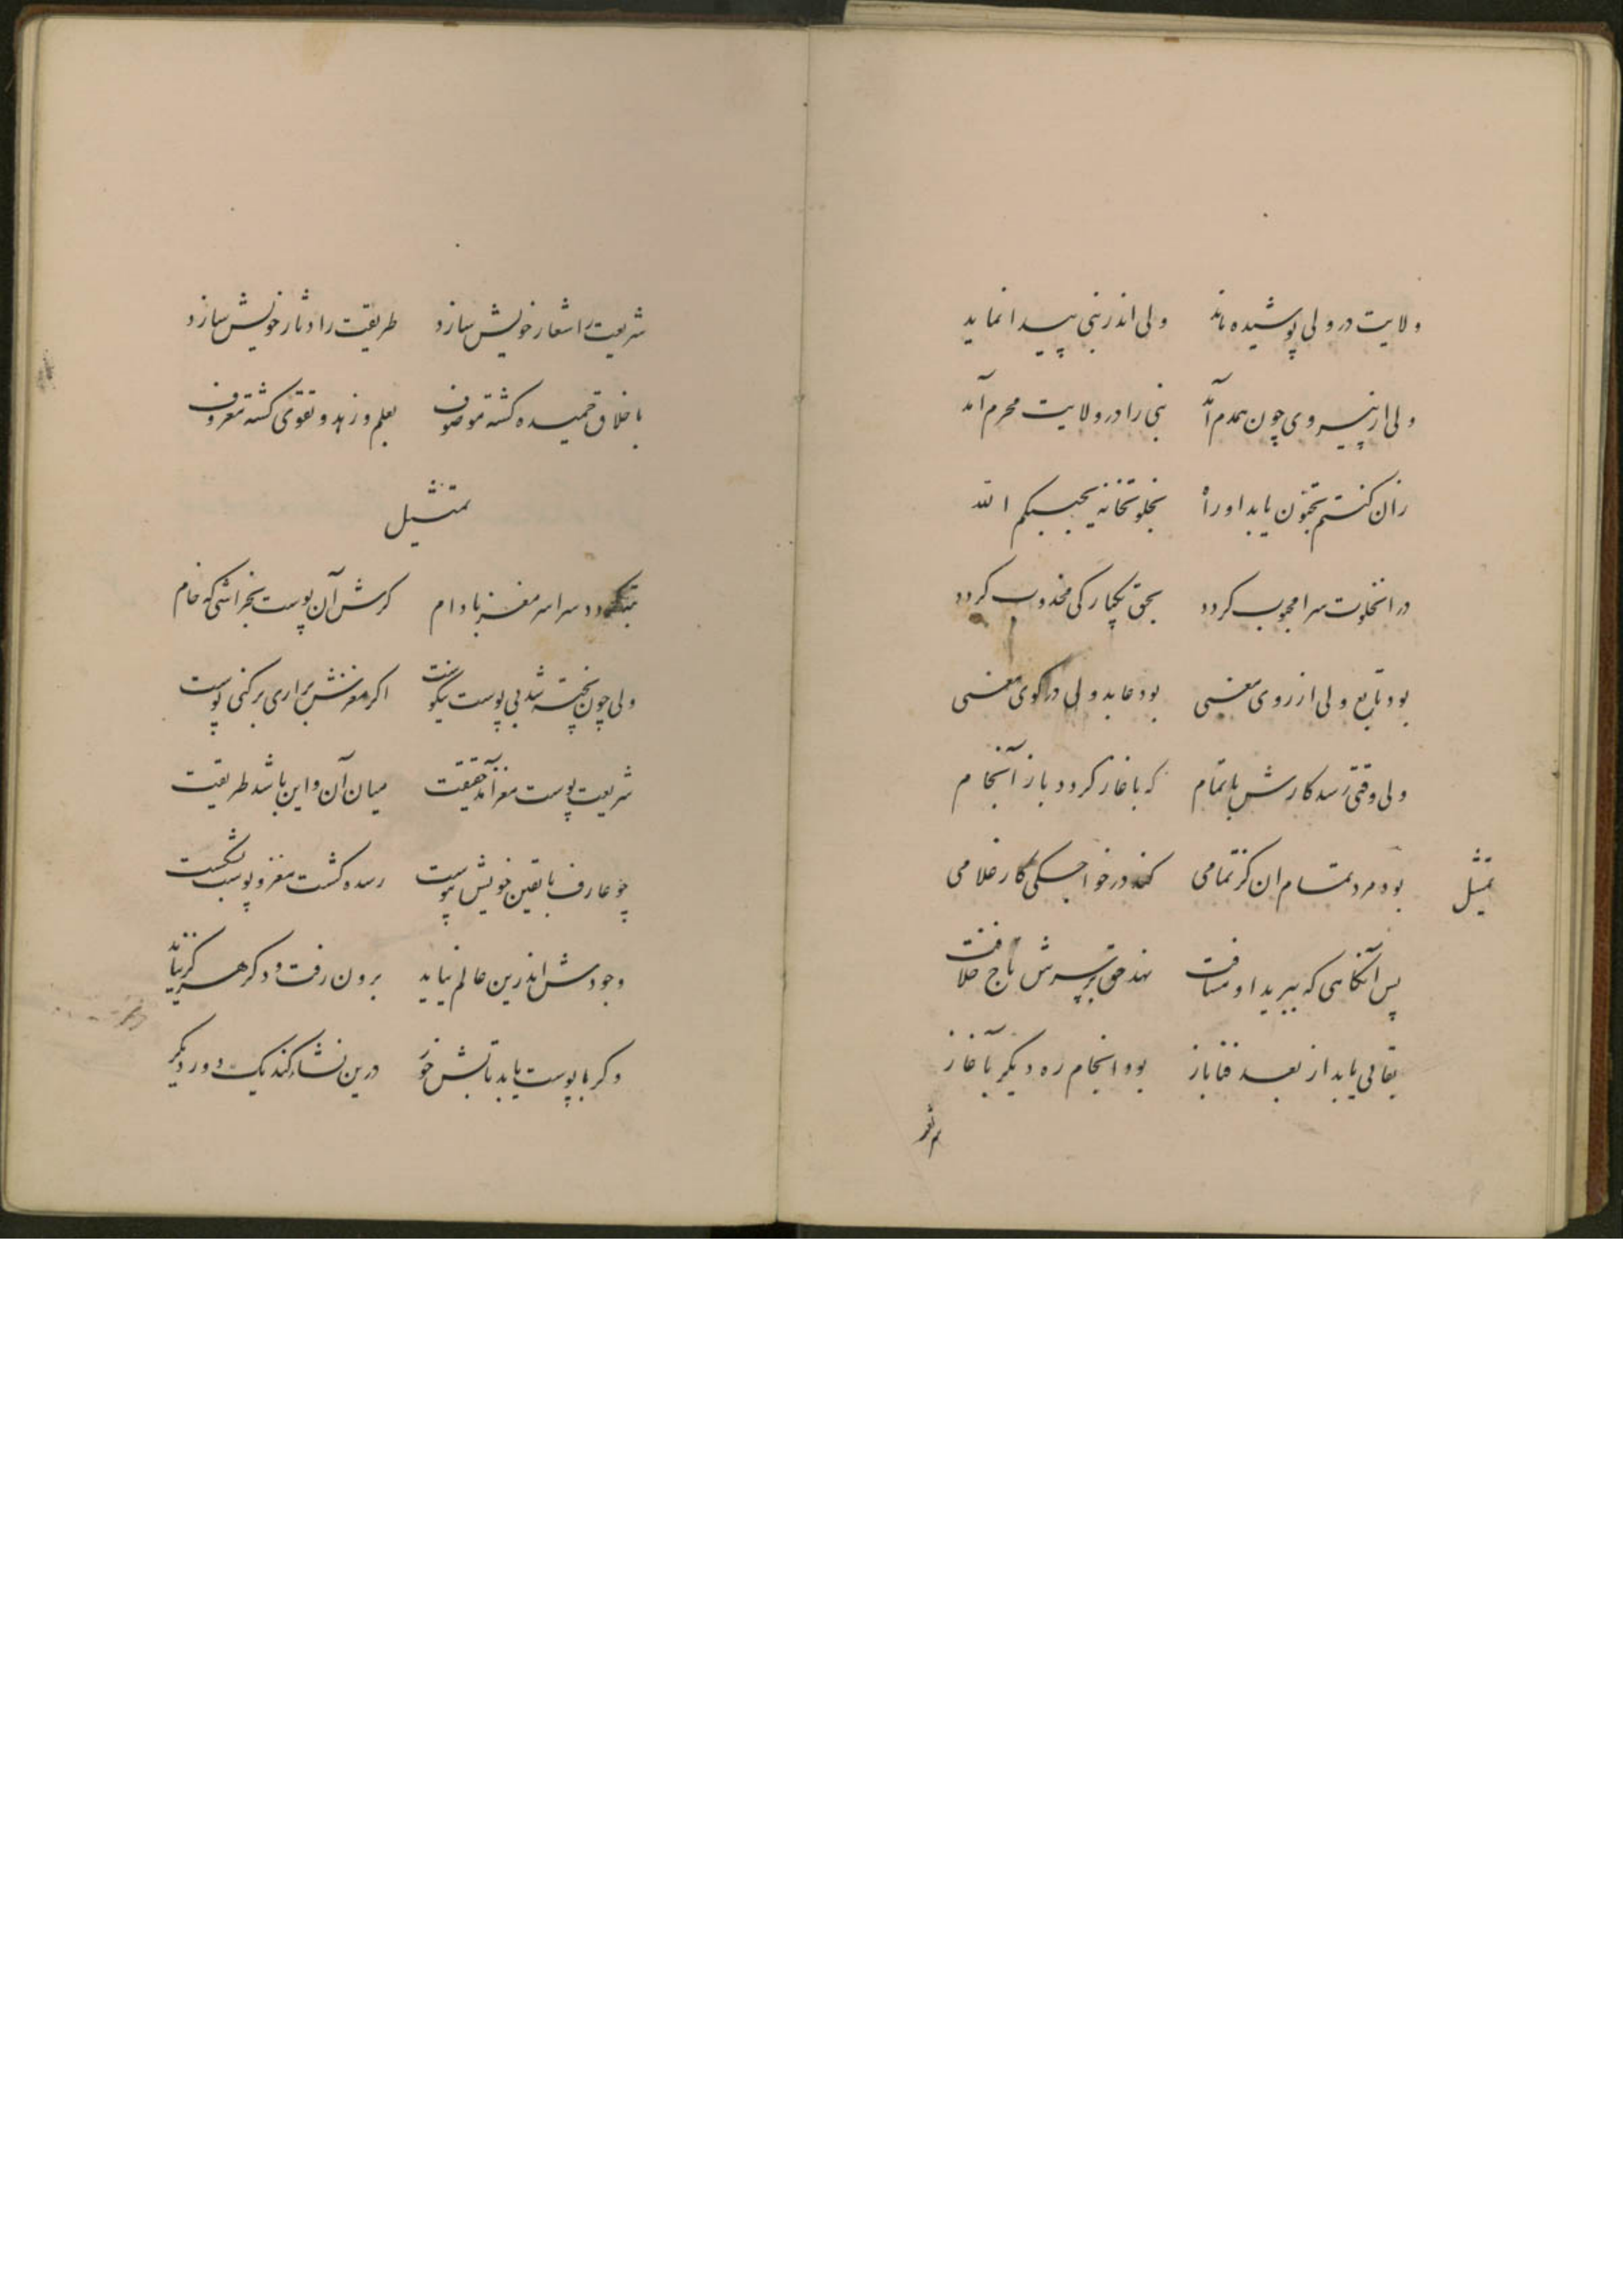 ولایت در ولی پوشیده ماند ولی اندر نبی پیدا نماید
ولی از پیروی چون همدم آمد نبی را در ولایت محرم آمد
زان کنتم تحبون یابد او راه بخلوتخانه یحببکم الله
در انخلوت سرا محبوب کردد بحق یکبارکی مجذوب کردد
بود تابع ولی از روی معنی بود عابد ولی در کوی معنی
ولی وقتی رسد کارش باتمام که باغاز کردد باز آنجام
تمثیل
بود مرد تمام ان کز تمامی کند در خواجکی کار غلامی
پس آنکاهی که ببرید او مسافت نهد حق بر سرش تاج خلافت
بقائی یابد از بعد فنا باز بود انجام ره دیگر بآغاز
شریعت را شعار خویش سازد طریقت را دثار خویش سازد
باخلاق حمیده کشته موصوف بعلم و زهد و تقوی کشته معروف
تمثیل
تبه کردد سراسر مغز بادام کرش آن پوست بخراشی که خام
ولی چون پخته شد بی پوست نیکوست اکر مغزش براری برکنی پوست
شریعت پوست مغز آمد حقیقت میان آن و این باشد طریقت
چو عارف با یقین خویش پیوست رسده کشت مغز و پوست بشکست
وجودش اندرین عالم نیاید برون رفت و دکر هرکز نیاید
وکر با پوست یابد تابش خور درین نشاء کند یک دور دیکر